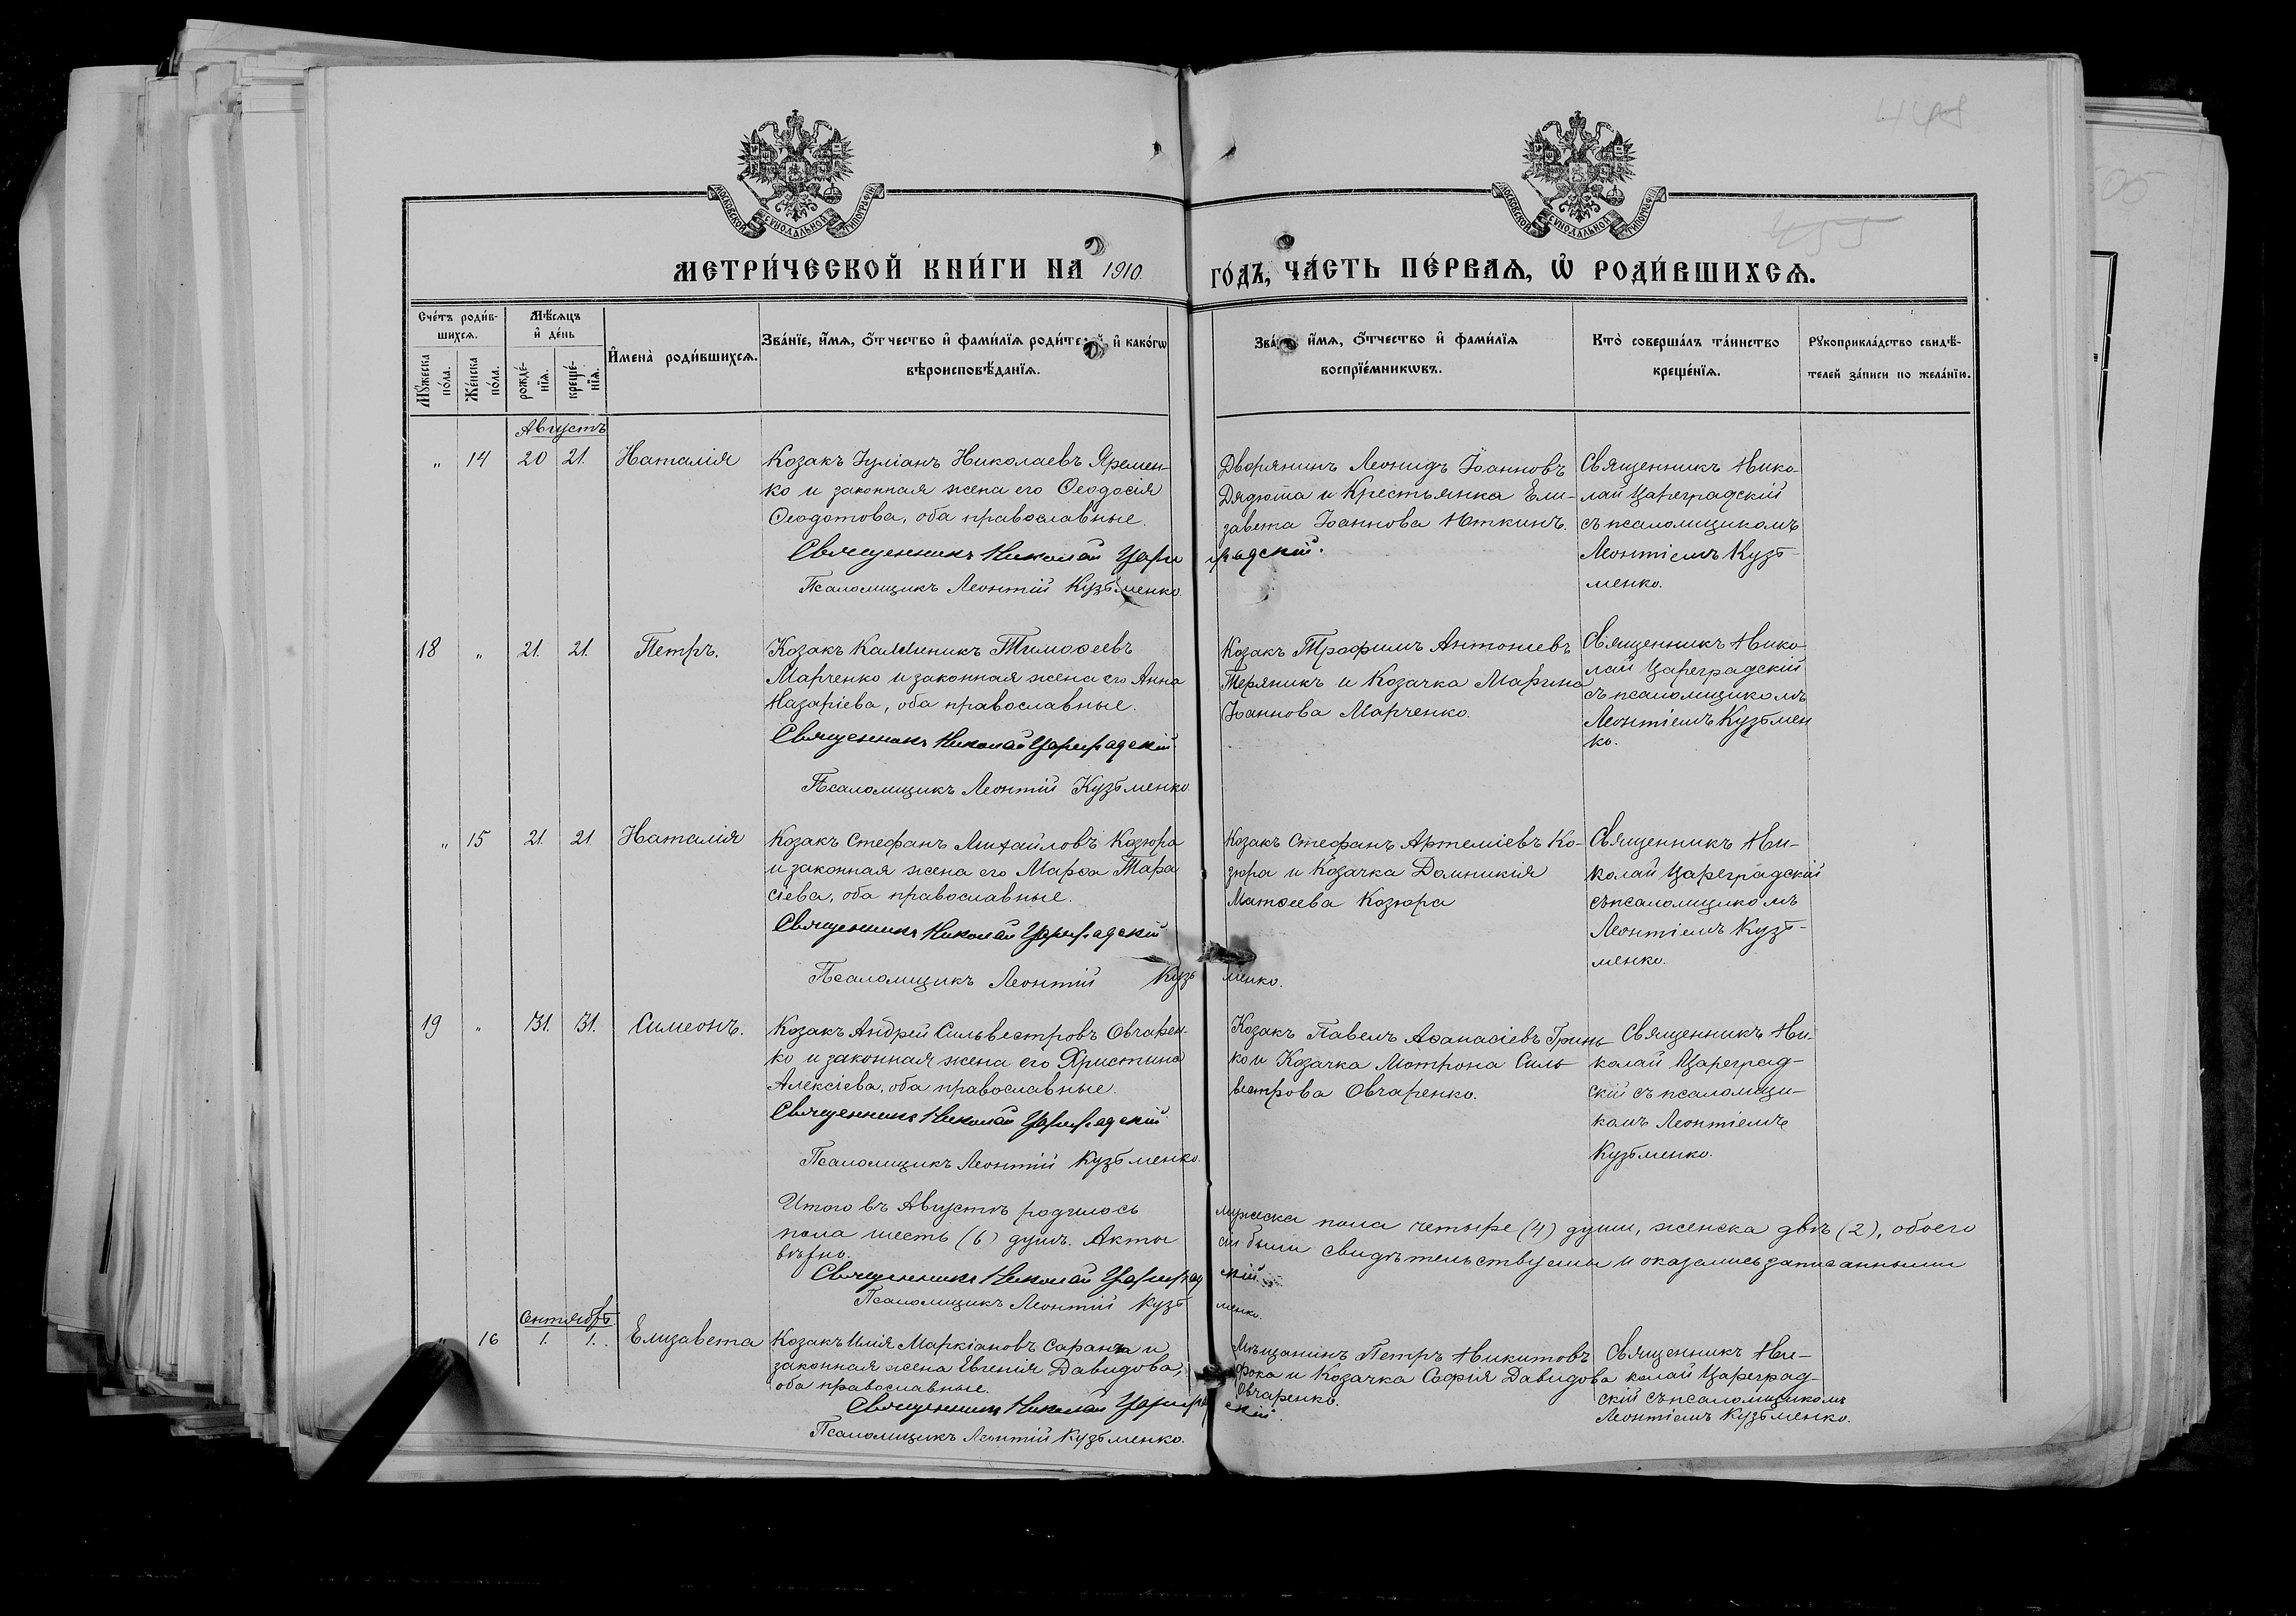 448
455
505
МОСКОВСКОЙ СУНОДАЛЬНОЙ ТИПОГРАФІИ
МОСКОВСКОЙ СУНОДАЛЬНОЙ ТИПОГРАФІИ
МЕТРИ́ЧЕСКОЙ КНИ́ГИ НА 1910. ГО́ДЪ, ЧА́СТЬ ПЕ́РВАѦ, Ѡ҆ РОДИ́ВШИХСѦ.
Сче́тъ роди́в-
шихсѧ.
Мꙋ́жеска по́ла.
Же́нска по́ла.
Мѣ́сѧцъ
и҆ де́нь
рожде́-
нїѧ.
креще́-
нїѧ.
И҆мена̀ роди́вшихсѧ.
Зва́нїе, и҆́мѧ, ѻ҆́тчество и҆ фами́лїѧ роди́те и҆ како́гѡ
вѣроисповѣ́данїѧ.
Зва́ и҆́мѧ, ѻ҆́тчество и҆ фами́лїѧ
воспрїе́мникѡвъ.
Кто̀ соверша́лъ та́инство
креще́нїѧ.
Рꙋкоприкла́дство свидѣ́-
телей за́писи по жела́нїю.
Августъ
" 14 20 21. Наталія
Козакъ Іуліанъ Николаевъ Яремен-
ко и законная жена его Ѳеодосія
Ѳеодотова, оба православные.
Священникъ Николай Цареградскій.
Псаломщикъ Леонтій Кузьменко.
Дворянинъ Леонидъ Іоанновъ
Дядюша и Крестьянка Ели-
завета Іоаннова
Священникъ Нико-
лай Цареградскій
съ псаломщикомъ
Леонтіемъ Кузь-
менко.
18 " 21. 21. Петръ.
Козакъ Каллиникъ Тимоѳеевъ
Марченко и законная жена его Анна
Назаріева, оба православные.
Священникъ Николай Цареградскій
Псаломщикъ Леонтій Кузьменко
Козакъ Трофимъ Антоніевъ
Теряникъ и Козачка Марина
Іоаннова Марченко.
Священникъ Нико-
лай Цареградскій
съ псаломщикомъ
Леонтіемъ Кузьмен
ко.
" 15 21. 21 Наталія
Козакъ Стефанъ Михайловъ Козюра
и законная жена его Марѳа Тара
сіева, оба православные.
Священникъ Николай Цареградскій
Псаломщикъ Леонтій Кузьменко.
Козакъ Стефанъ Артеміевъ Ко-
зюра и Козачка Домникія
Матѳеева Козюра
Священникъ Ни-
колай Цареградскій
съ псаломщикомъ
Леонтіемъ Кузь-
менко.
19 " 31. 31. Симеонъ.
Козакъ Андрей Сильвестровъ Овчарен-
ко и законная жена его Христина
Алексіева, оба православные.
Священникъ Николай Цареградскій
Псаломщикъ Леонтій Кузьменко.
Козакъ Павелъ Аѳанасіевъ Гринь-
ко и Козачка Мотрона Силь
вестрова Овчаренко.
Священникъ Ни-
колай Цареград-
скій съ псаломщи-
комъ Леонтіемъ
Кузьменко.
Итого въ Августѣ родилось мужеска пола четыре (4) души, женска двѣ (2), обоего
пола шесть (6) душъ. Акты сіи были свидѣтельствуемы и оказались записанными
вѣрно.
Священникъ Николай Цареградскій
Псаломщикъ Леонтій Кузьменко.
Сентябрь
" 16 1. 1. Елизавета
Козакъ Илія Маркіановъ Саранча и
законная жена Евгенія Давидова,
оба православные.
Священникъ Николай Цареградскій.
Псаломщикъ Леонтій Кузьменко.
Мѣщанинъ Петръ Никитовъ
Фока и Козачка Софія Давидова
Овчаренко.
Священникъ Ни-
колай Цареград-
скій съ псаломщикомъ
Леонтіемъ Кузьменко.